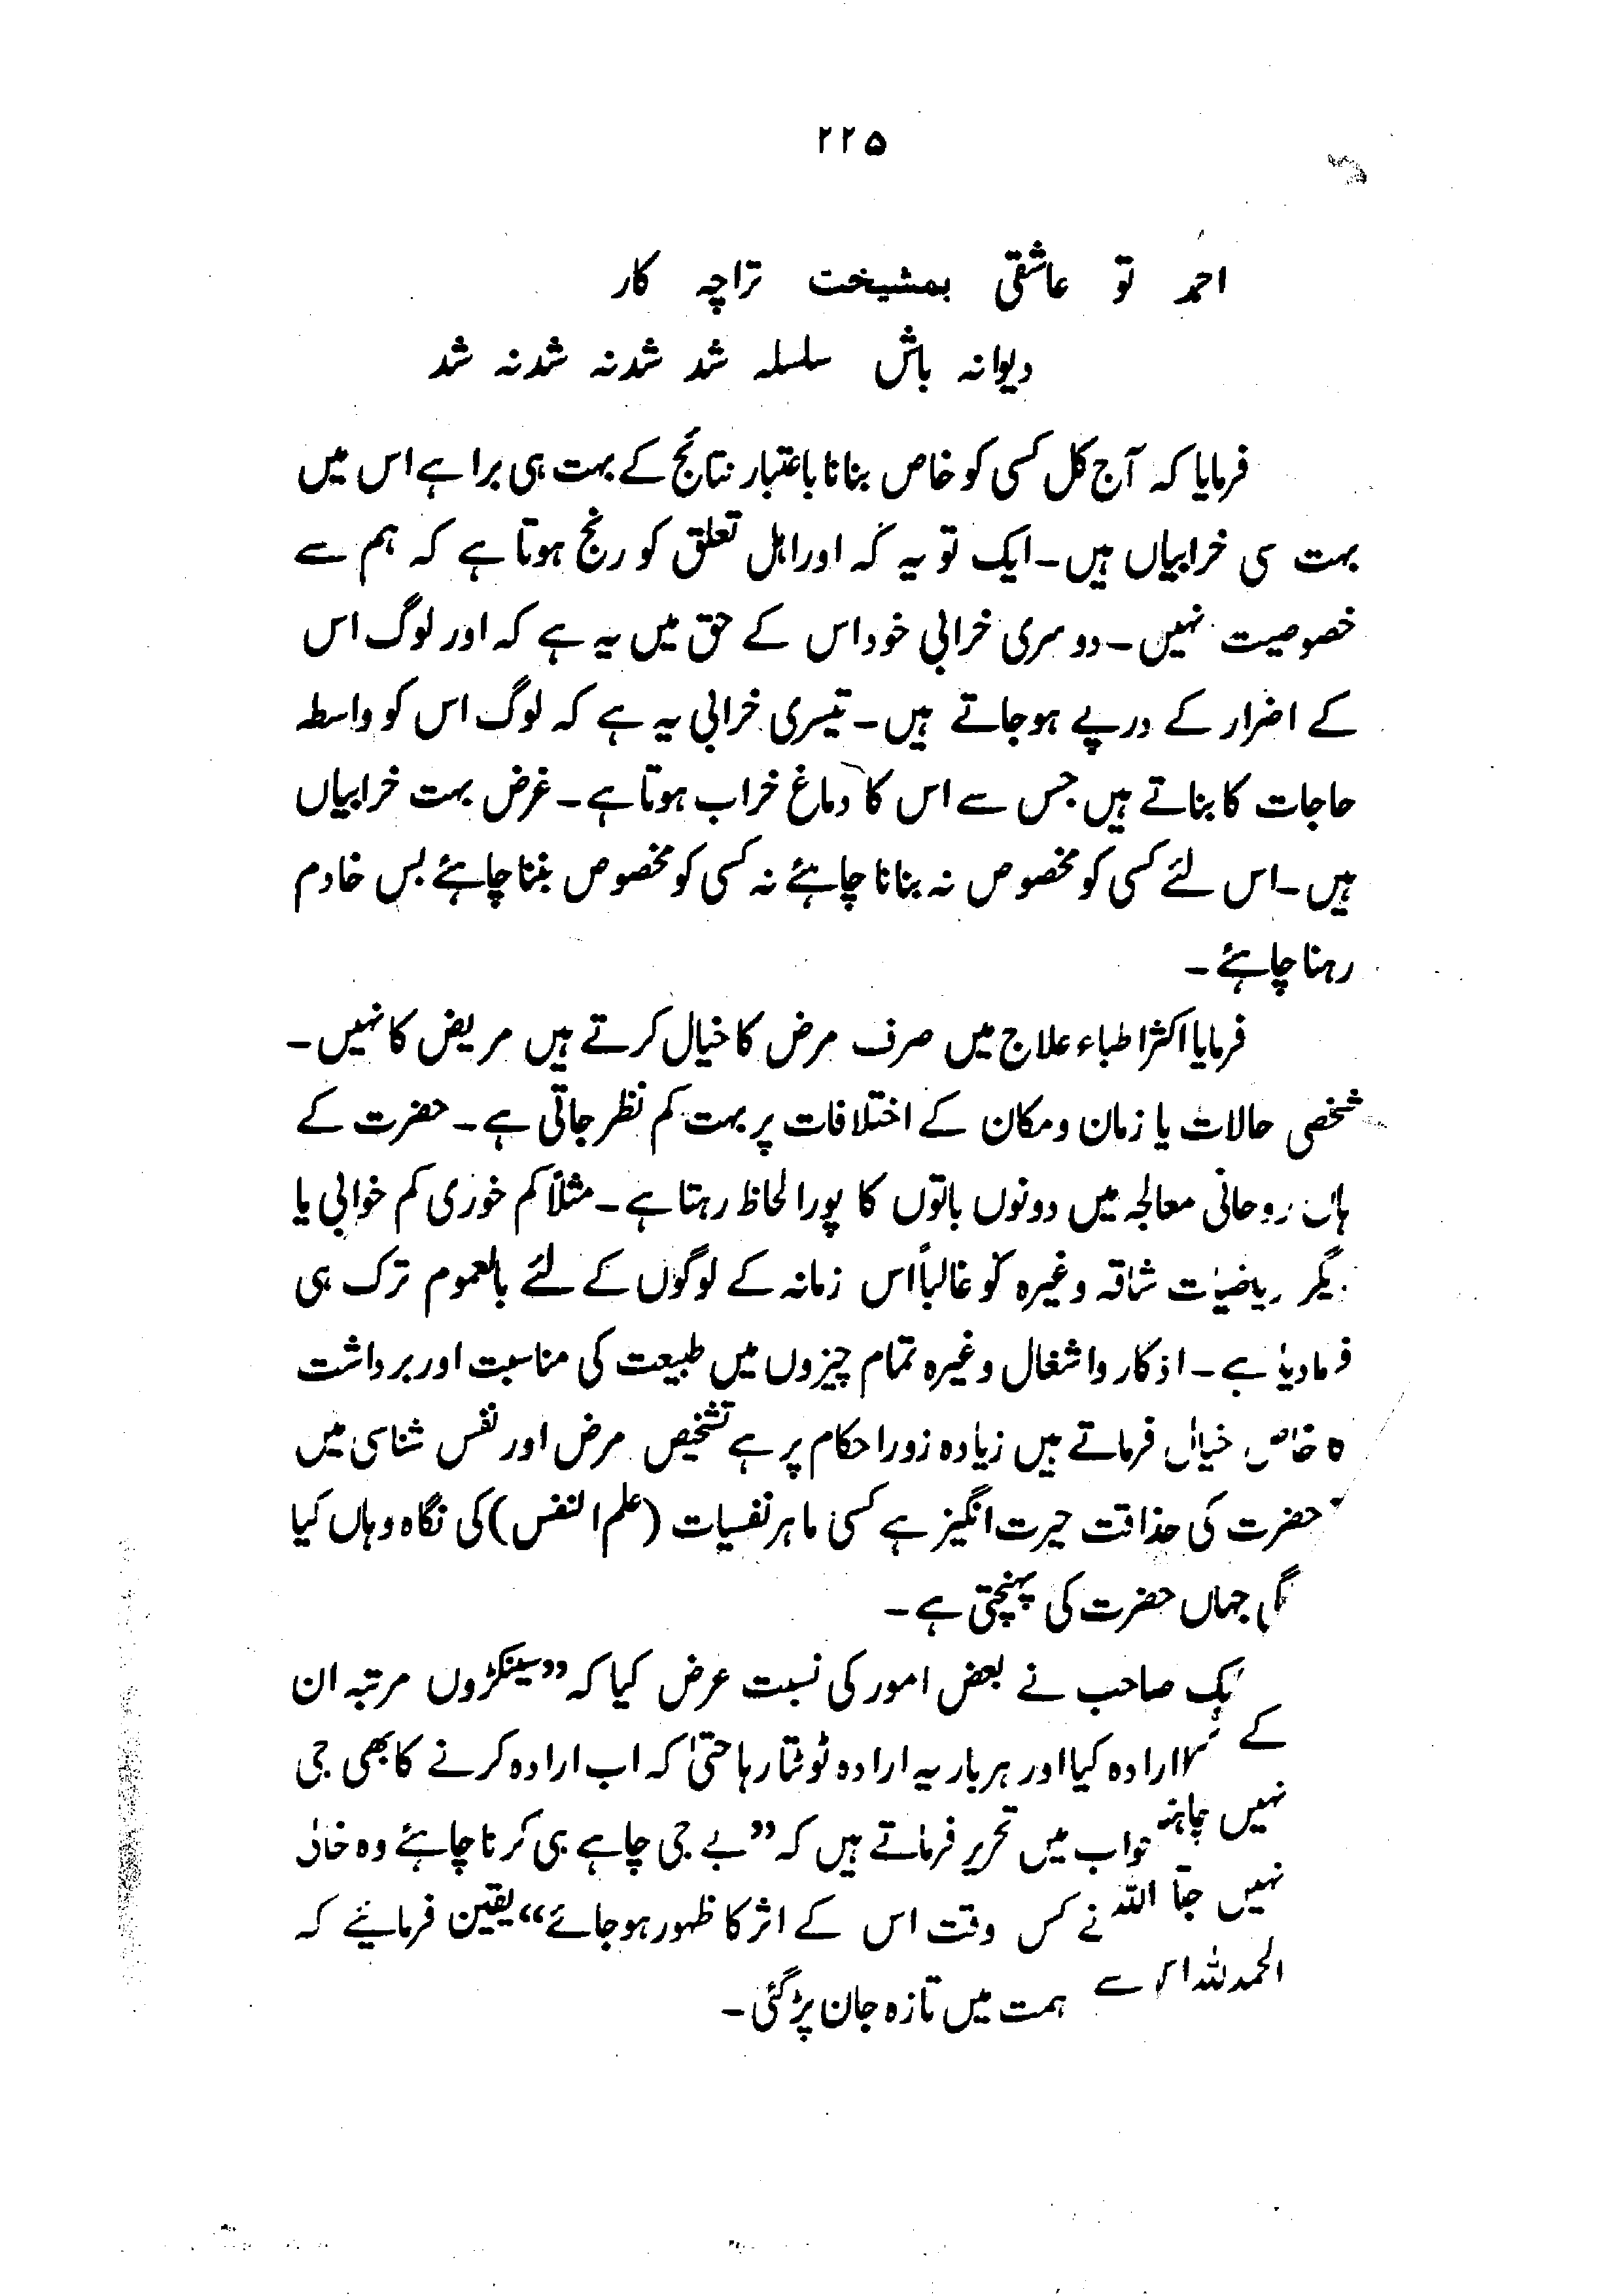 ۲۲۵
احمد تو عاشقی بمشیخت تراچہ کار
دیوانہ باش سلسلہ شد شدنہ شدنہ شد
فرمایا کہ آج کل کسی کو خاص بنانا باعتبار نتائج کے بہت ہی برا ہے اس میں
بہت سی خرابیاں ہیں۔ ایک تو یہ کہ اور اہل تعلق کو رنج ہوتا ہے کہ ہم سے
خصوصیت نہیں۔ دوسری خرابی خود اس کے حق میں یہ ہے کہ اور لوگ اس
کے اضرار کے درپے ہوجاتے ہیں۔ تیسری خرابی یہ ہے کہ لوگ اس کو واسطہ
حاجات کا بناتے ہیں جس سے اس کا دماغ خراب ہوتا ہے۔ غرض بہت خرابیاں
ہیں۔ اس لئے کسی کو مخصوص نہ بنانا چاہئے نہ کسی کو مخصوص بننا چاہئے بس خادم
رہنا چاہئے۔
فرمایا اکثر اطباء علاج میں صرف مرض کا خیال کرتے ہیں مریض کا نہیں۔
شخصی حالات یا زمان و مکان کے اختلافات پر بہت کم نظر جاتی ہے۔ حضرت کے
ہاں روحانی معالجہ میں دونوں باتوں کا پورا لحاظ رہتا ہے۔ مثلاً کم خوری کم خوابی یا
یگر ریاضیات شاقہ وغیرہ کو غالباً اس زمانہ کے لوگوں کے لئے بالعموم ترک ہی
فرمادیا ہے۔ اذکار و اشغال وغیرہ تمام چیزوں میں طبیعت کی مناسبت اور برداشت
ہ خاص خیال فرماتے ہیں زیادہ زور احکام پر ہے تشخیص مرض اور نفس شناسی میں
حضرت کی حذاقت حیرت انگیز ہے کسی ماہر نفسیات (علم النفس) کی نگاہ وہاں کیا
گی جہاں حضرت کی پہنچتی ہے۔
یک صاحب نے بعض امور کی نسبت عرض کیا کہ ”سینکڑوں مرتبہ ان
کے ارادہ کیا اور ہر بار یہ ارادہ ٹوٹتا رہا حتیٰ کہ اب ارادہ کرنے کا بھی جی
نہیں چاہتا جواب میں تحریر فرماتے ہیں کہ ”بے جی چاہے ہی کرنا چاہئے وہ خالی
نہیں جاتا اللہ نے کس وقت اس کے اثر کا ظہور ہوجائے“ یقین فرمائیے کہ
الحمدللہ اس سے ہمت میں تازہ جان پڑ گئی۔